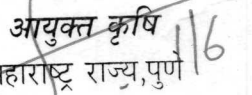 आयुक्त कृषि
हाराष्ट्र राज्य,पुणे
116